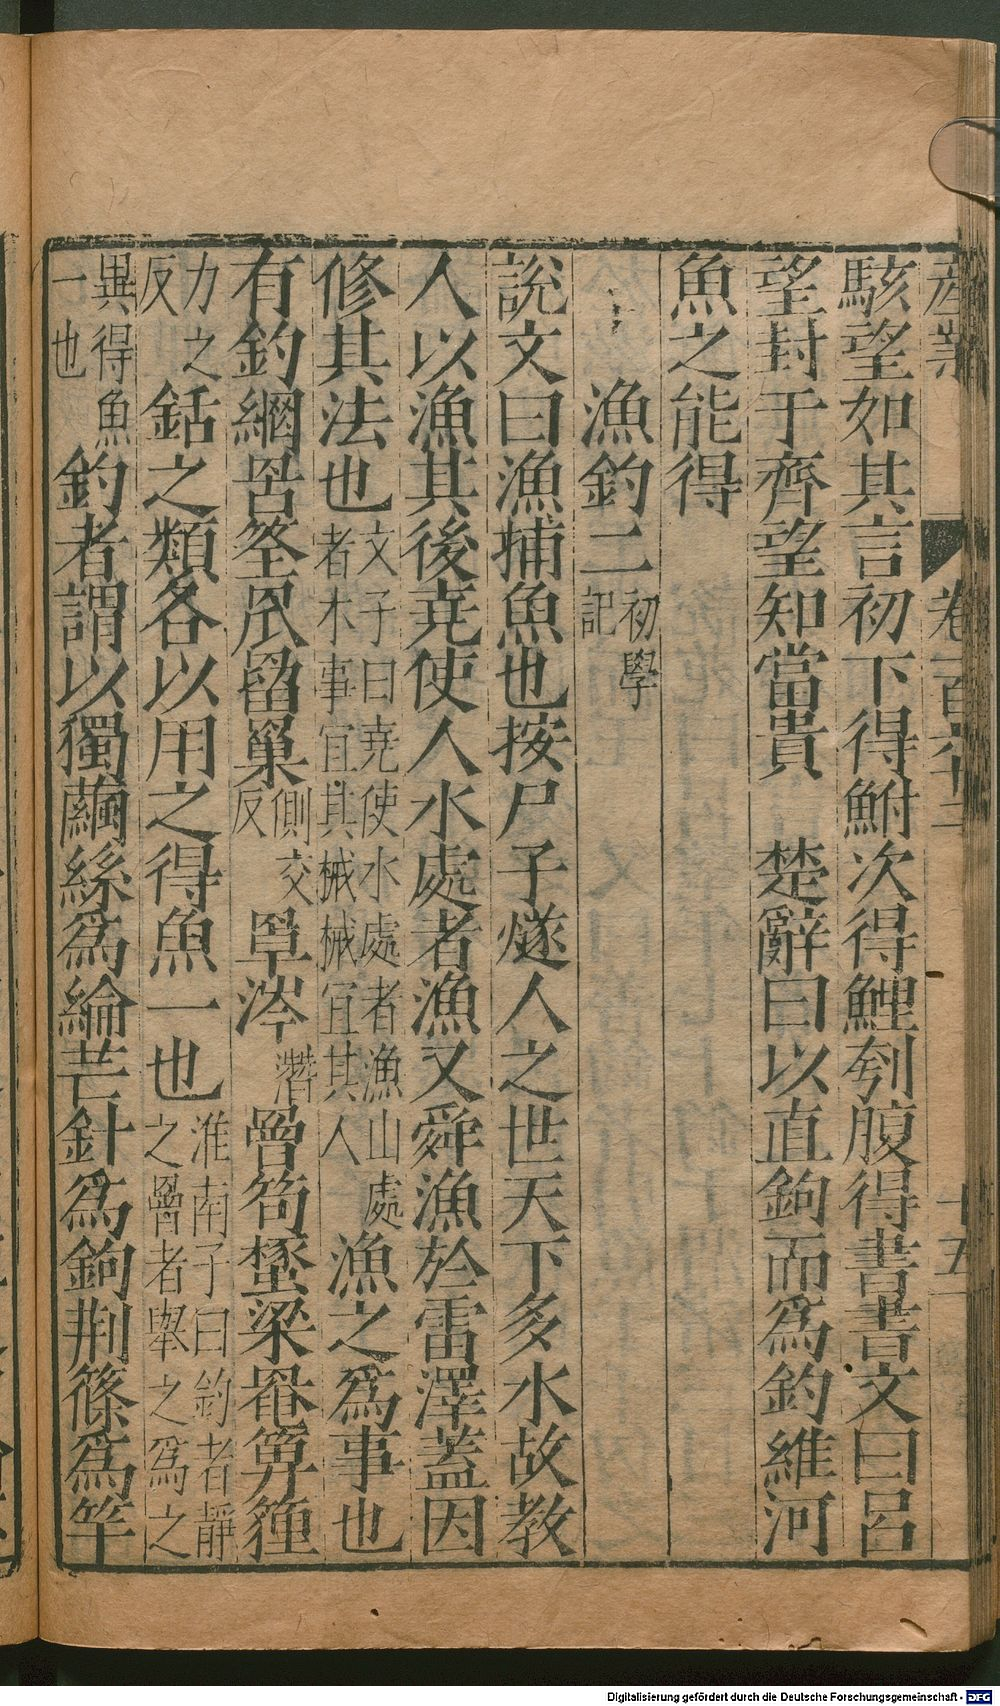 卷一百六十二 十五
駭望如其言初下得鮒次得鯉刳腹得書書文曰呂
望封于齊望知當貴 楚辭曰以直鉤而爲釣維河
魚之能得
漁釣二 初學記
說文曰漁捕魚也按尸子燧人之世天下多水故教
人以漁其後堯使人水處者漁又舜漁於雷澤蓋因
修其法也 文子曰堯使水處者漁山處者木事宜其械械宜其人 漁之爲事也
有釣網罟筌罛罶罺 側交反 罩涔 潛 罾笱 梁罨箄
力之反 銛之類各以用之得魚一也 淮南子曰釣者靜之罾者舉之爲之
異得魚一也 釣者謂以獨繭絲爲綸芒針爲鉤荆篠爲竿
Digitalisierung gefördert durch die Deutsche Forschungsgemeinschaft - DFG